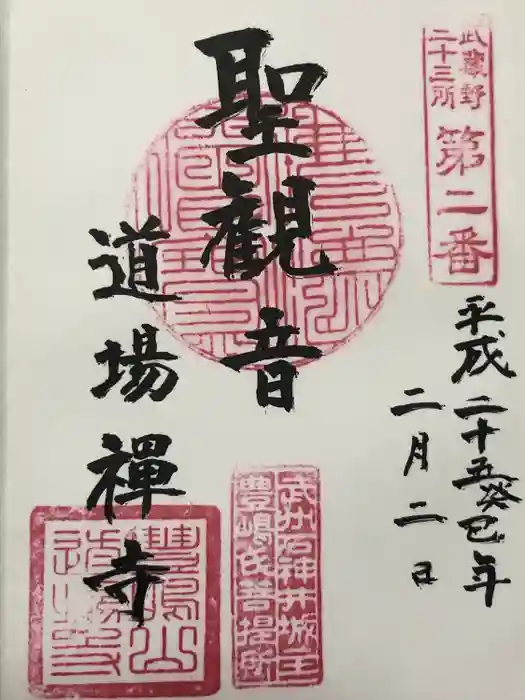 武蔵野
二十三所
第二番
平成二十五癸巳年
二月二日
聖観音
道場禅寺
武州石神井城主
豊嶋氏菩提所